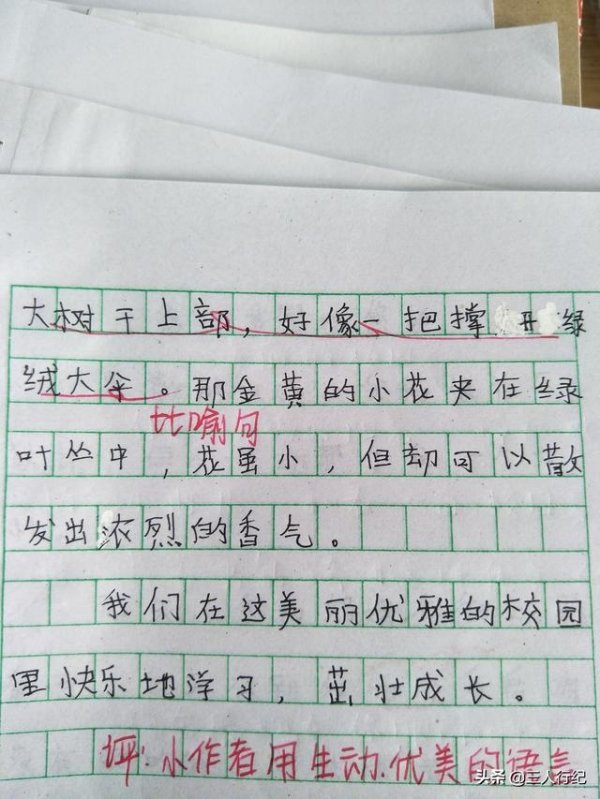 大树干上部，好像一把撑开绿
绒大伞。那金黄的小花夹在绿
比喻句
叶丛中，花虽小，但却可以散
发出浓烈的香气。
我们在这美丽优雅的校园
里快乐地学习，茁壮成长。
评：小作者用生动、优美的语气
头条@三人行纪